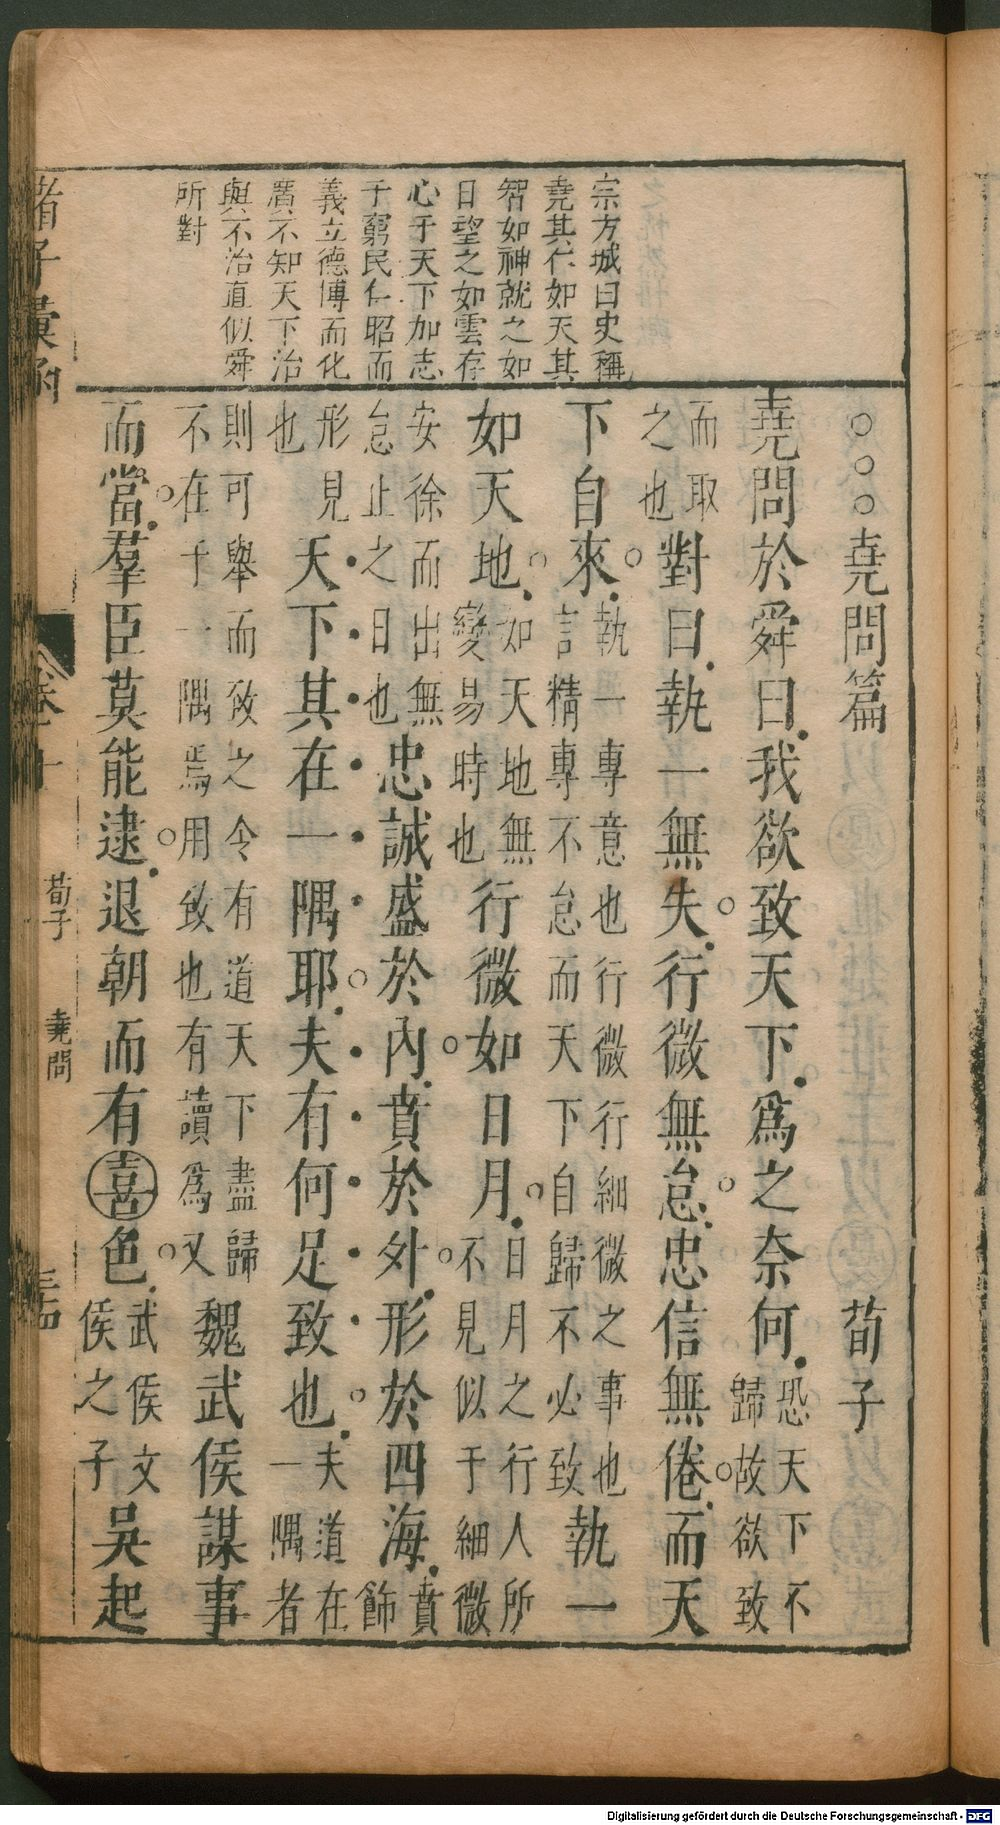 宗方城曰史稱
堯其仁如天其
智如神就之如
日望之如雲存
心于天下加志
于窮民仁昭而
義立德博而化
廣不知天下治
與不治直似舜
所對
○○○堯問篇 荀子
堯問於舜曰我欲致天下爲之奈何恐天下不歸故欲致
而取之也對曰執一無失行微無怠忠信無倦而天
下自來執一專意也行微行細微之事也言精專不怠而天下自歸不必致執一
如天地如天地無變易時也行微如日月日月之行人所不見似于細微
安徐而出無怠止之日也忠誠盛於內賁於外形於四海賁飾
形見也天下其在一隅耶夫有何足致也夫道在一隅者
則可舉而致之今有道天下盡歸不在于一隅焉用致也有讀爲又魏武侯謀事
而當羣臣莫能逮退朝而有喜色武侯文侯之子吳起
諸子彙函
卷十
荀子
堯問
Digitalisierung gefördert durch die Deutsche Forschungsgemeinschaft - DFG